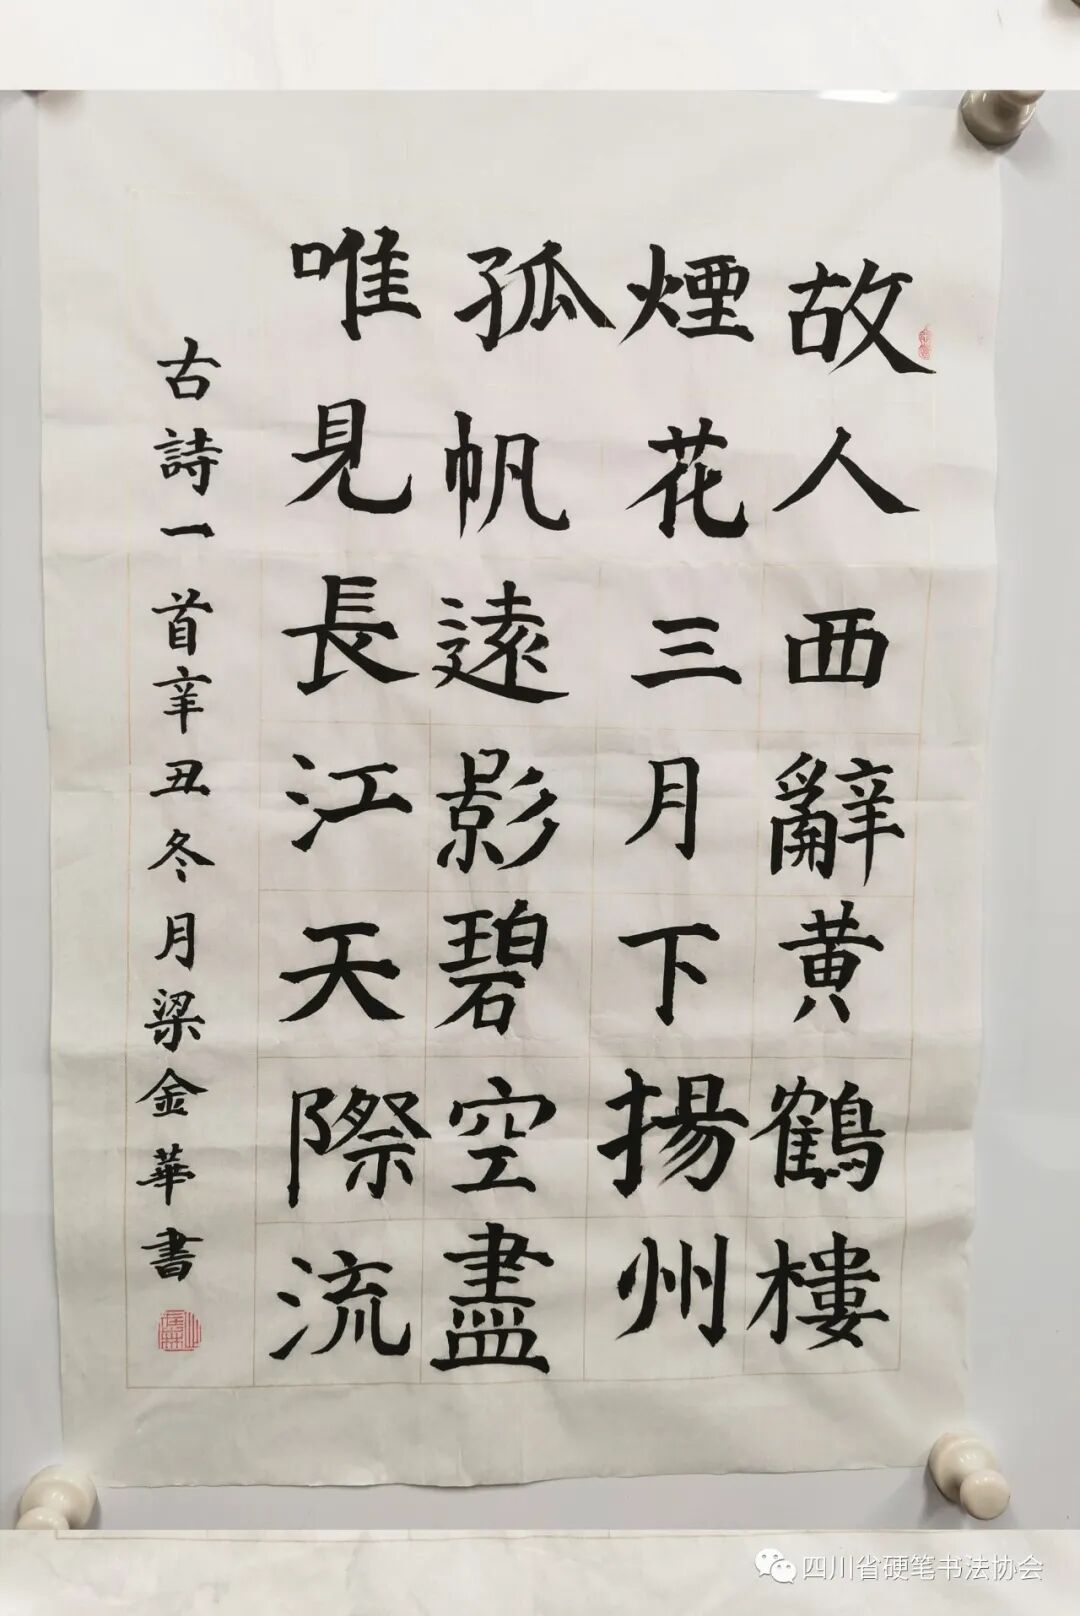 故人西辭黄鶴樓
煙花三月下揚州
孤帆遠影碧空盡
唯見長江天際流
古詩一首辛丑冬月梁金華書
四川省硬笔书法协会